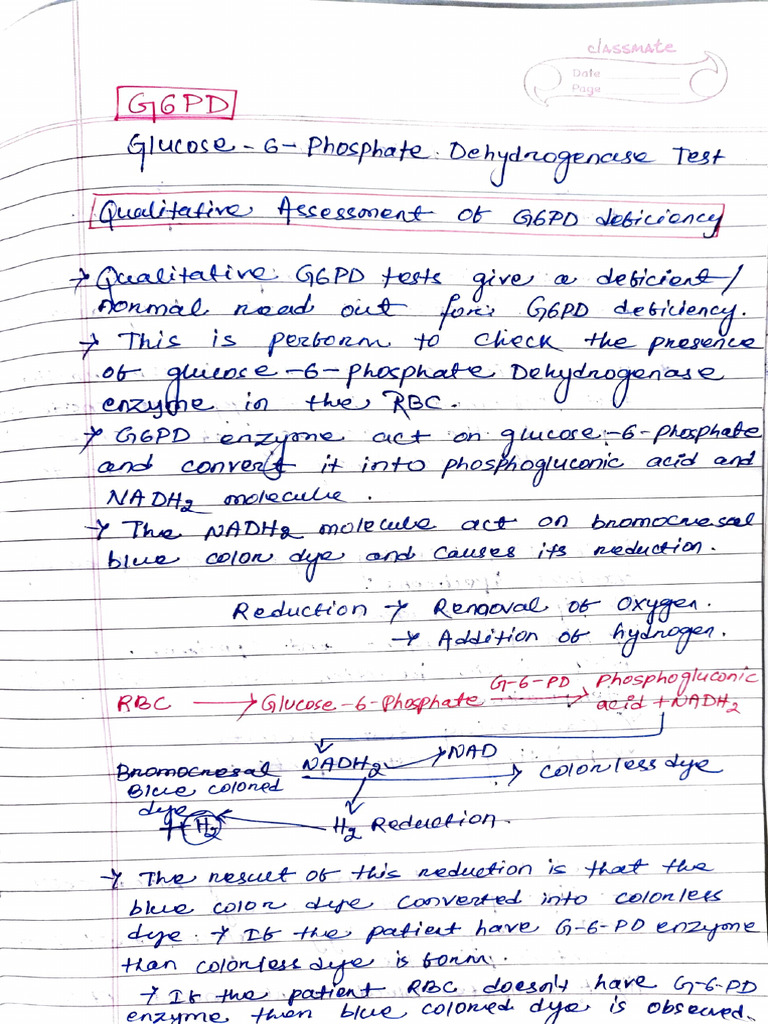 classmate
Date
Page
G6PD
Glucose-6-Phosphate Dehydrogenase Test
Qualitative Assessment of G6PD deficiency
→ Qualitative G6PD tests give a deficient/
normal read out for G6PD deficiency.
→ This is perform to check the presence
of glucose-6-phosphate Dehydrogenase
enzyme in the RBC.
→ G6PD enzyme act on glucose-6-phosphate
and convert it into phosphogluconic acid and
NADH2 molecule.
→ The NADH2 molecule act on bromocresal
blue color dye and causes its reduction.
Reduction → Removal of oxygen.
→ Addition of hydrogen.
RBC → Glucose-6-Phosphate G-6-PD → Phosphogluconic
acid + NADH2
Bromocresal NADH2 → NAD → Colorless dye
Blue colored
dye
+ H2 ← H2 Reduction.
→ The result of this reduction is that the
blue color dye converted into colorless
dye. → If the patient have G-6-PD enzyme
than colorless dye is form.
→ If the patient RBC doesn't have G-6-PD
enzyme then blue colored dye is observed.